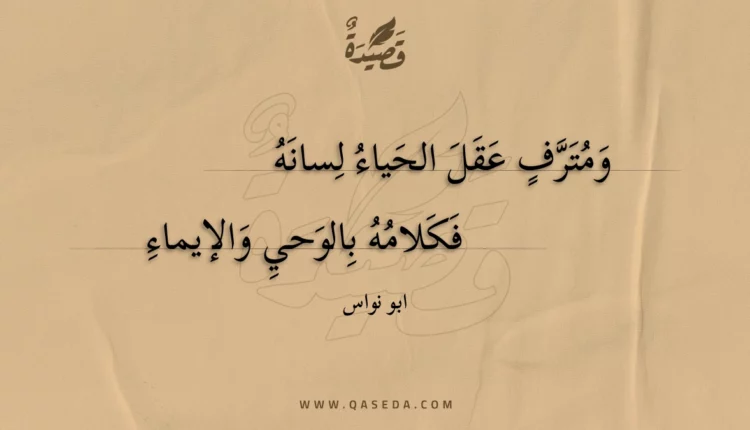 قَصِيْدَةٌ
وَمُتَرَّفٍ عَقَلَ الحَياءُ لِسانَهُ
فَكَلامُهُ بِالوَحيِ وَالإيماءِ
ابو نواس
WWW.QASEDA.COM